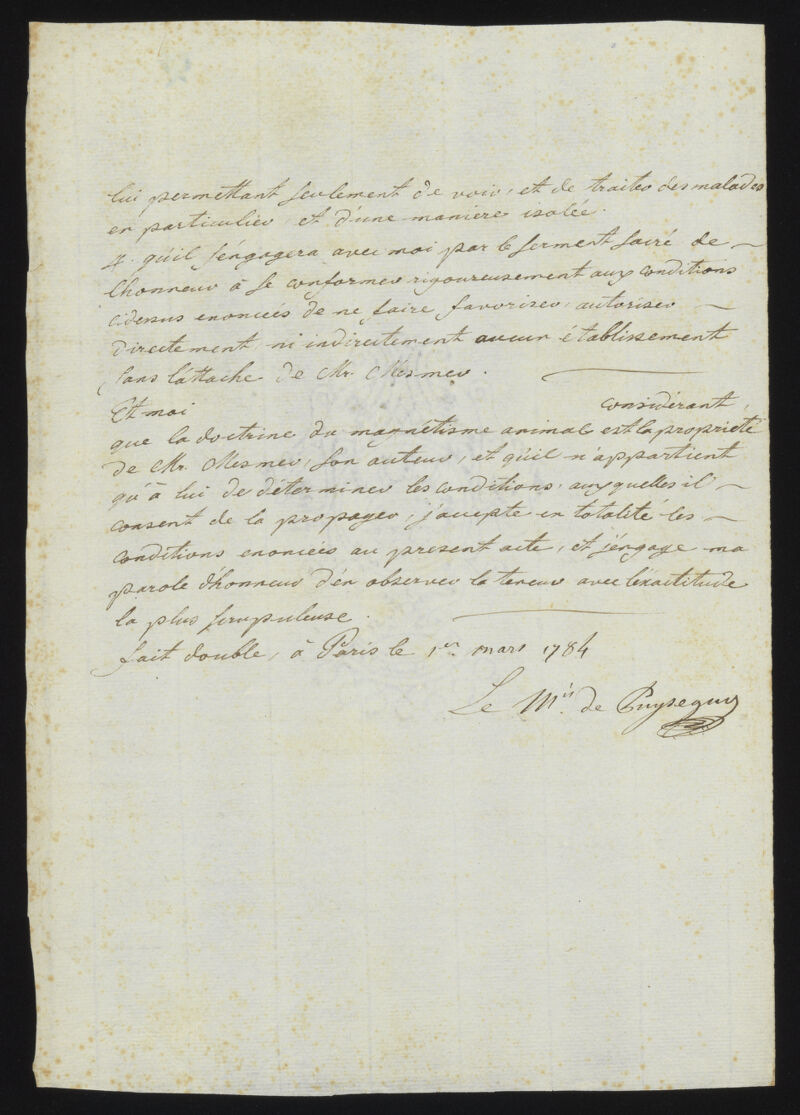 lui permettant seulement de voir, et de traiter des malades
en particulier, et d'une maniere isolée.
4. qu'il s'engagera avec moi par le serment sacré de
l'honneur à se conformer rigoureusement aux conditions
cidessus enoncées de ne faire favoriser, autoriser
directement, ni indirectement aucun établissement
sans l'attache de Mr. Mesmer.
Et moi considérant
que la doctrine du magnétisme animal est la propriété
de Mr. Mesmer, son auteur, et qu'il n'appartient
qu'à lui de déterminer les conditions, auxquelles il
consent de la propager, j'accepte en totalité les
conditions enoncées au present acte, et j'engage ma
parole d'honneur d'en observer la teneur avec l'exactitude
la plus scrupuleuse.
fait double, à Paris le 1er. mars 1784
Le Mis. de Puysegur